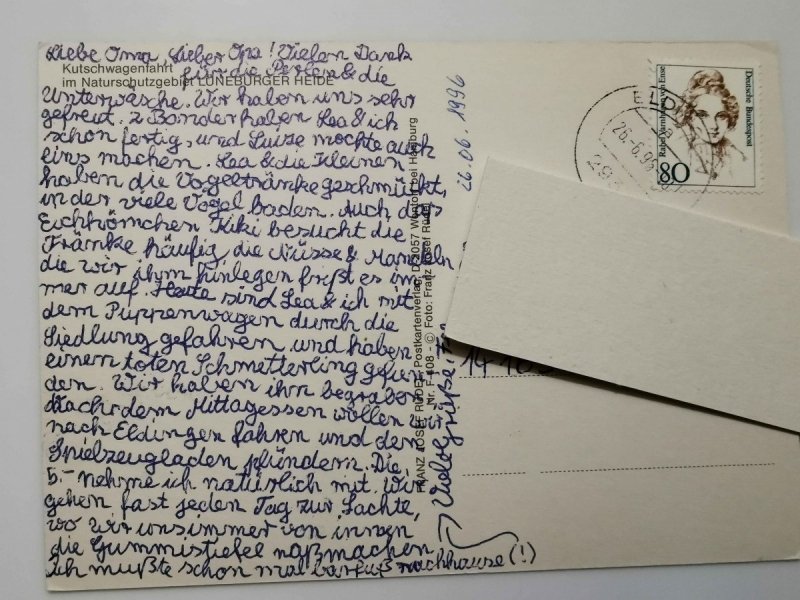 Liebe Oma, Lieber Opa! Vielen Dank
für die Perlen & die
Unterwäsche. Wir haben uns sehr
gefreut. 2 Bänder haben Lea & ich
schon fertig, und Luise möchte auch
eins machen. Lea & die Kleinen
haben die Vogeltränke geschmückt,
in der viele Vögel baden. Auch das
Eichhörnchen Kiki besucht die
Tränke häufig, die Nüsse & Mandeln
die wir ihm hinlegen frißt es im
mer auf. Heute sind Lea & ich mit
dem Puppenwagen durch die
Siedlung gefahren und haben
einen toten Schmetterling gefun
den. Wir haben ihn begraben.
Nach dem Mittagessen wollen wir
nach Eldingen fahren und den
Spielzeugladen plündern. Die
5.- nehme ich natürlich mit. Wir
gehen fast jeden Tag zur Lachte,
wo wir uns immer von innen
die Gummistiefel naßmachen
ich mußte schon mal barfuß nachhause (!)
Viele Grüße
Kutschwagenfahrt
im Naturschutzgebiet LÜNEBURGER HEIDE
26.06.1996
FRANZ JOSEF RÜDEL, Postkartenverlag, D-2057 Wentorf bei Hamburg
Nr. F 408 - © Foto: Franz Josef Rüdel
26.-6.96
Deutsche Bundespost
80
14 163